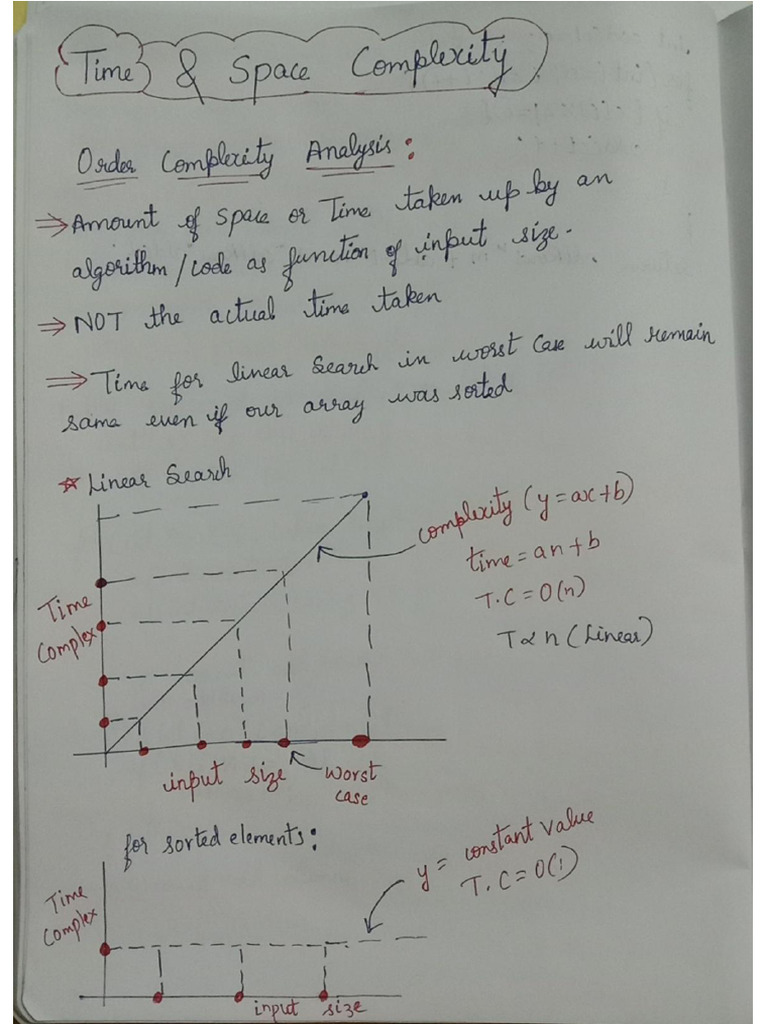 Time & Space Complexity
Order Complexity Analysis:
⇒ Amount of space or Time taken up by an
algorithm/code as function of input size.
⇒ NOT the actual time taken
⇒ Time for linear search in worst case will remain
same even if our array was sorted
☆ Linear Search
complexity (y=ax+b)
time = an + b
T.C = O(n)
T∝ n (Linear)
Time
Complex
input size
worst
case
for sorted elements:
y = constant value
T.C = O(1)
Time
Complex
input size